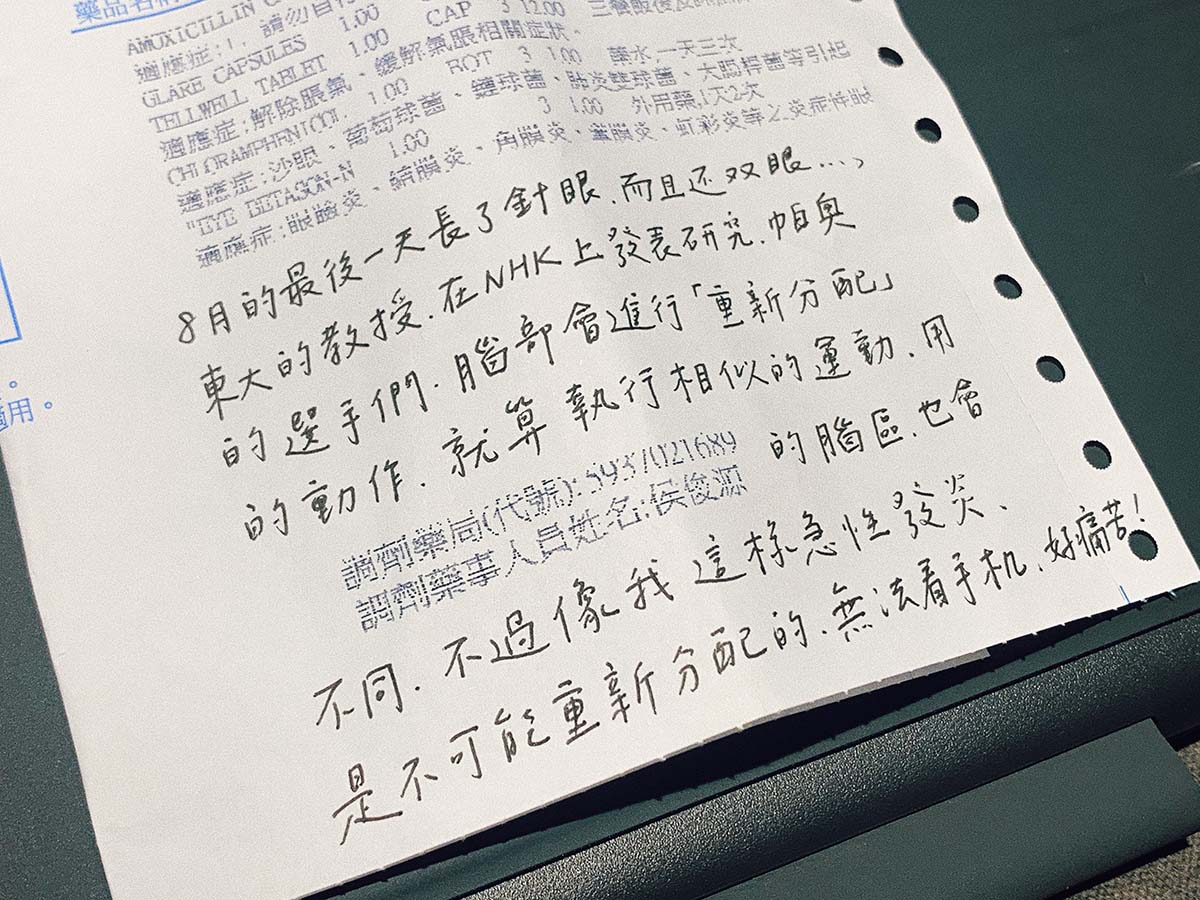 藥品名
AMOXICILLIN C
適應症:1. 請勿自行
GLARE CAPSULES 1.00 CAP 3 12.00 三餐飯後及
TELLWELL TABLET 1.00
適應症:解除脹氣、緩解氣脹相關症狀。
CHLORAMPHENICOL 1.00 BOT 3 1.00 藥水,一天三次
適應症:沙眼、葡萄球菌、鏈球菌、肺炎雙球菌、大腸桿菌等引起
"EYE BETASON-N 1.00 3 1.00 外用藥,1天2次
適應症:眼瞼炎、結膜炎、角膜炎、鞏膜炎、虹彩炎等之炎症性眼
8月的最後一天長了針眼.而且还双眼...,
東大的教授.在NHK上發表研究.帕奧
的選手們.腦部會進行「重新分配」
的動作.就算執行相似的運動.用
的腦區.也會
調劑藥局(代號):5937021689
調劑藥事人員姓名:侯俊源
不同.不過像我這樣急性發炎、
是不可能重新分配的.無法看手机.好痛苦!
。
適用。